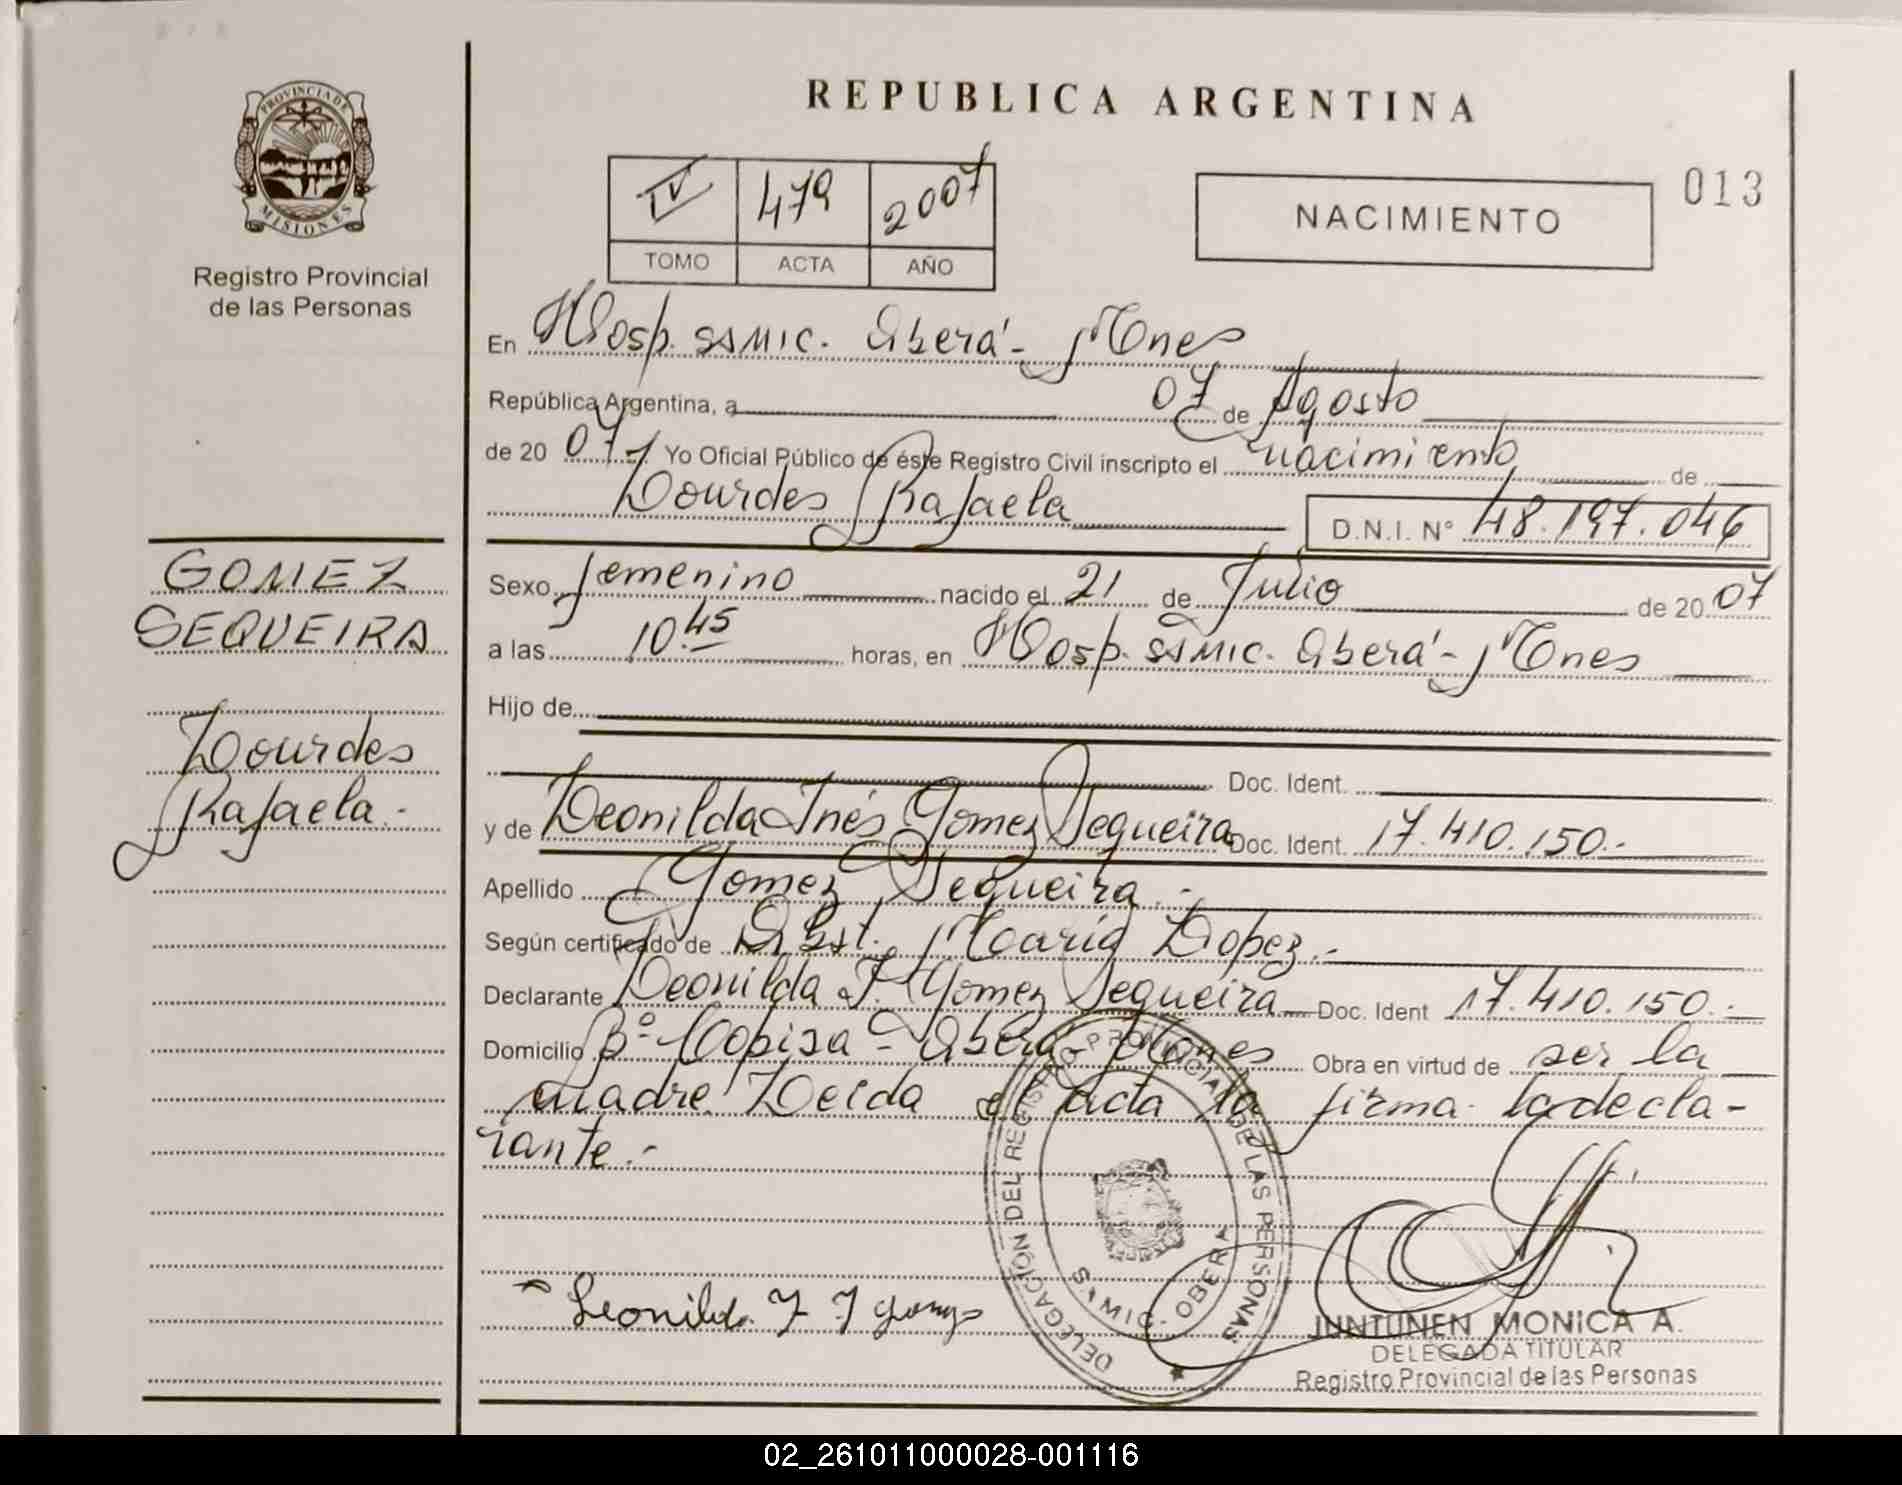 REPUBLICA ARGENTINA
PROVINCIA DE
MISIONES
Registro Provincial
de las Personas
IV 479 2007
TOMO ACTA AÑO
NACIMIENTO
013
En Hosp. SAMIC. Oberá - Mnes
República Argentina, a 07 de Agosto
de 20 07 Yo Oficial Público de éste Registro Civil inscripto el nacimiento de
Lourdes Rafaela D.N.I. Nº 48.197.046
GOMEZ
SEQUEIRA
Lourdes
Rafaela.-
Sexo femenino nacido el 21 de Julio de 20 07
a las 10.45 horas, en Hosp. SAMIC. Oberá - Mnes
Hijo de
Doc. Ident.
y de Leonilda Inés Gomez Sequeira Doc. Ident. 17.410.150.-
Apellido Gomez Sequeira.-
Según certificado de Obst. Maria Lopez.-
Declarante Leonilda I. Gomez Sequeira Doc. Ident 17.410.150.-
Domicilio Bº Copisa - Oberá - Mnes Obra en virtud de ser la
madre. Leida el acta la firma la decla-
rante.-
DELEGACIÓN DEL REGISTRO PROVINCIAL DE LAS PERSONAS
SAMIC - OBERA
Leonilda
JUNTUNEN MONICA A.
DELEGADA TITULAR
Registro Provincial de las Personas
02_261011000028-001116